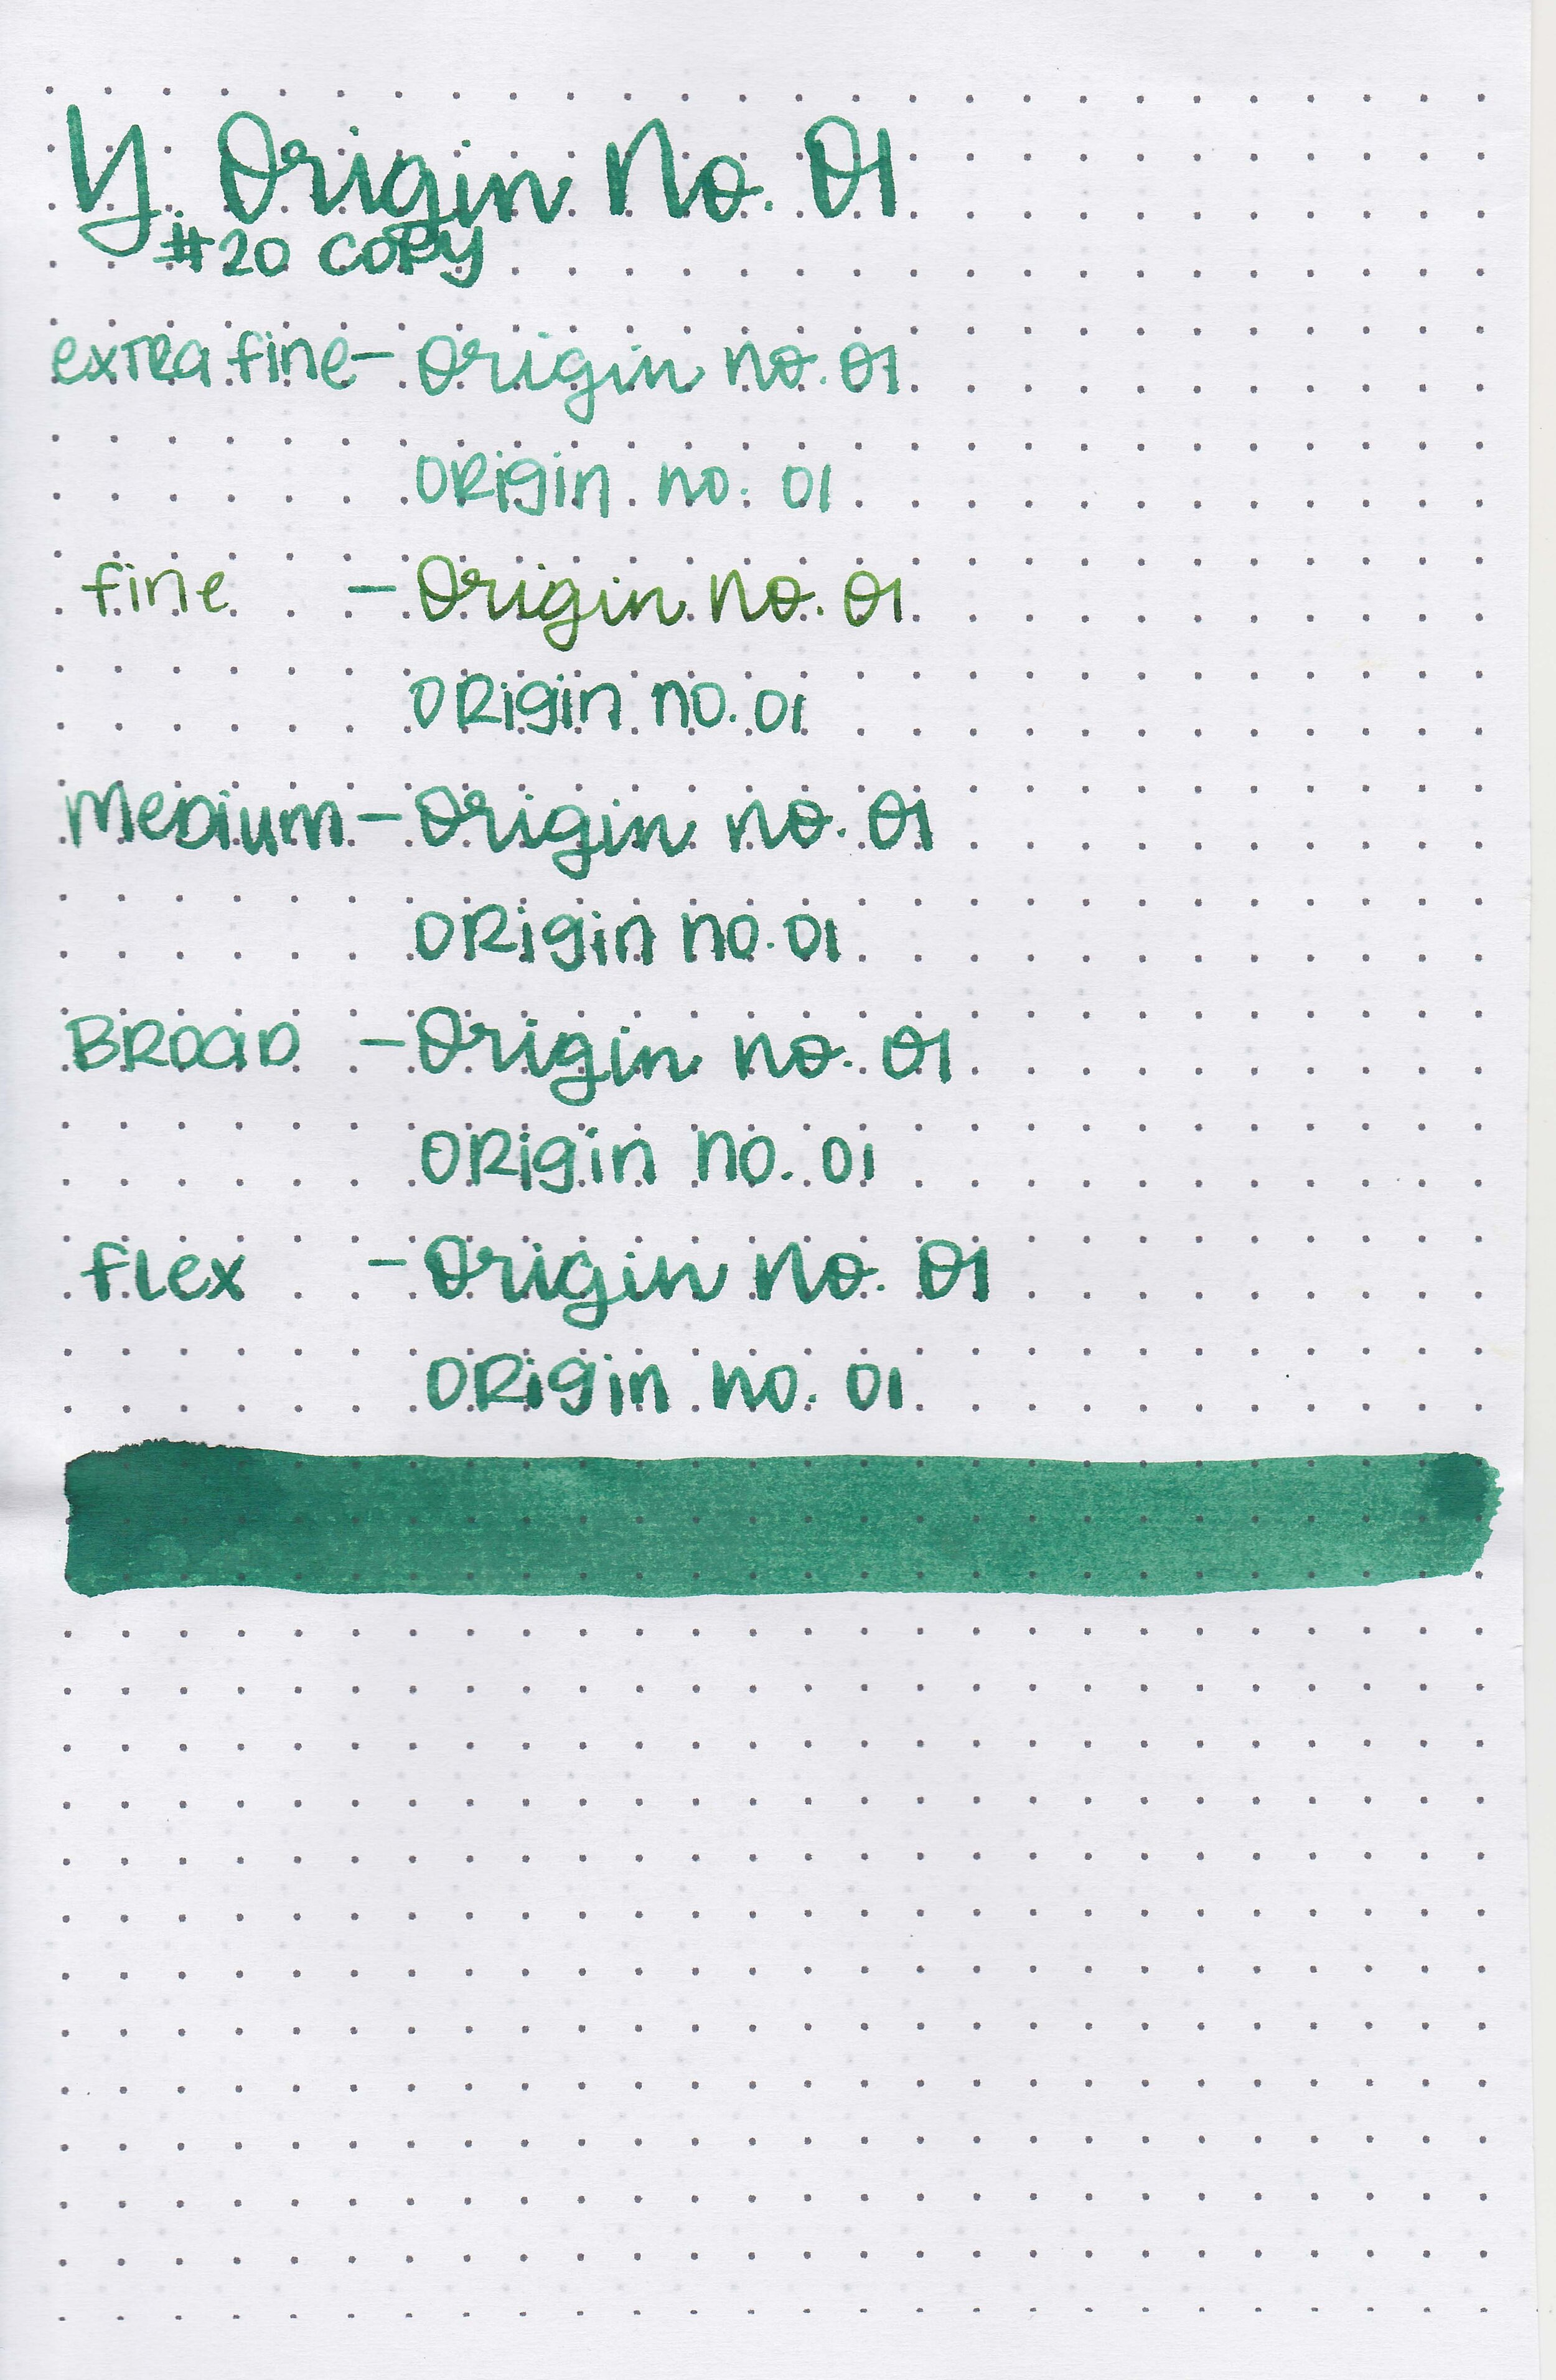 Y. Origin No. 01
#20 COPY
extra fine - Origin no. 01
Origin no. 01
fine - Origin no. 01
Origin no. 01
Medium - Origin no. 01
Origin no. 01
Broad - Origin no. 01
Origin no. 01
flex - Origin no. 01
Origin no. 01